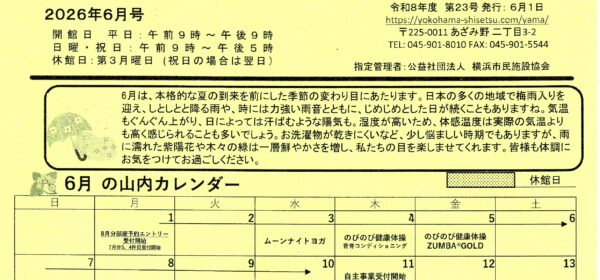 2026年6月号
令和8年度 第23号 発行：6月1日
開館日 平日：午前9時～午後9時
https://yokohama-shisetsu.com/yama/
日曜・祝日：午前9時～午後5時
〒225-0011 あざみ野 二丁目3-2
休館日：第3月曜日（祝日の場合は翌日）
TEL: 045-901-8010 FAX: 045-901-5544
指定管理者：公益社団法人 横浜市民施設協会
6月は、本格的な夏の到来を前にした季節の変わり目にあたります。日本の多くの地域で梅雨入りを
迎え、しとしとと降る雨や、時には力強い雨音とともに、じめじめとした日が続くこともありますね。気温
もぐんぐん上がり、日によっては汗ばむような陽気も。湿度が高いため、体感温度は実際の気温より
も高く感じられることも多いでしょう。お洗濯物が乾きにくいなど、少し悩ましい時期でもありますが、雨
に濡れた紫陽花や木々の緑は一層鮮やかさを増し、私たちの目を楽しませてくれます。皆様も体調に
お気をつけてお過ごしください。
6月 の山内カレンダー
休館日
日 月 火 水 木 金 土
1 2 3 4 5 6
8月分部屋予約エントリー
受付開始
7月分3、4件目受付開始
ムーンナイトヨガ
のびのび健康体操
背骨コンディショニング
のびのび健康体操
ZUMBA®GOLD
7 8 9 10 11 12 13
自主事業受付開始